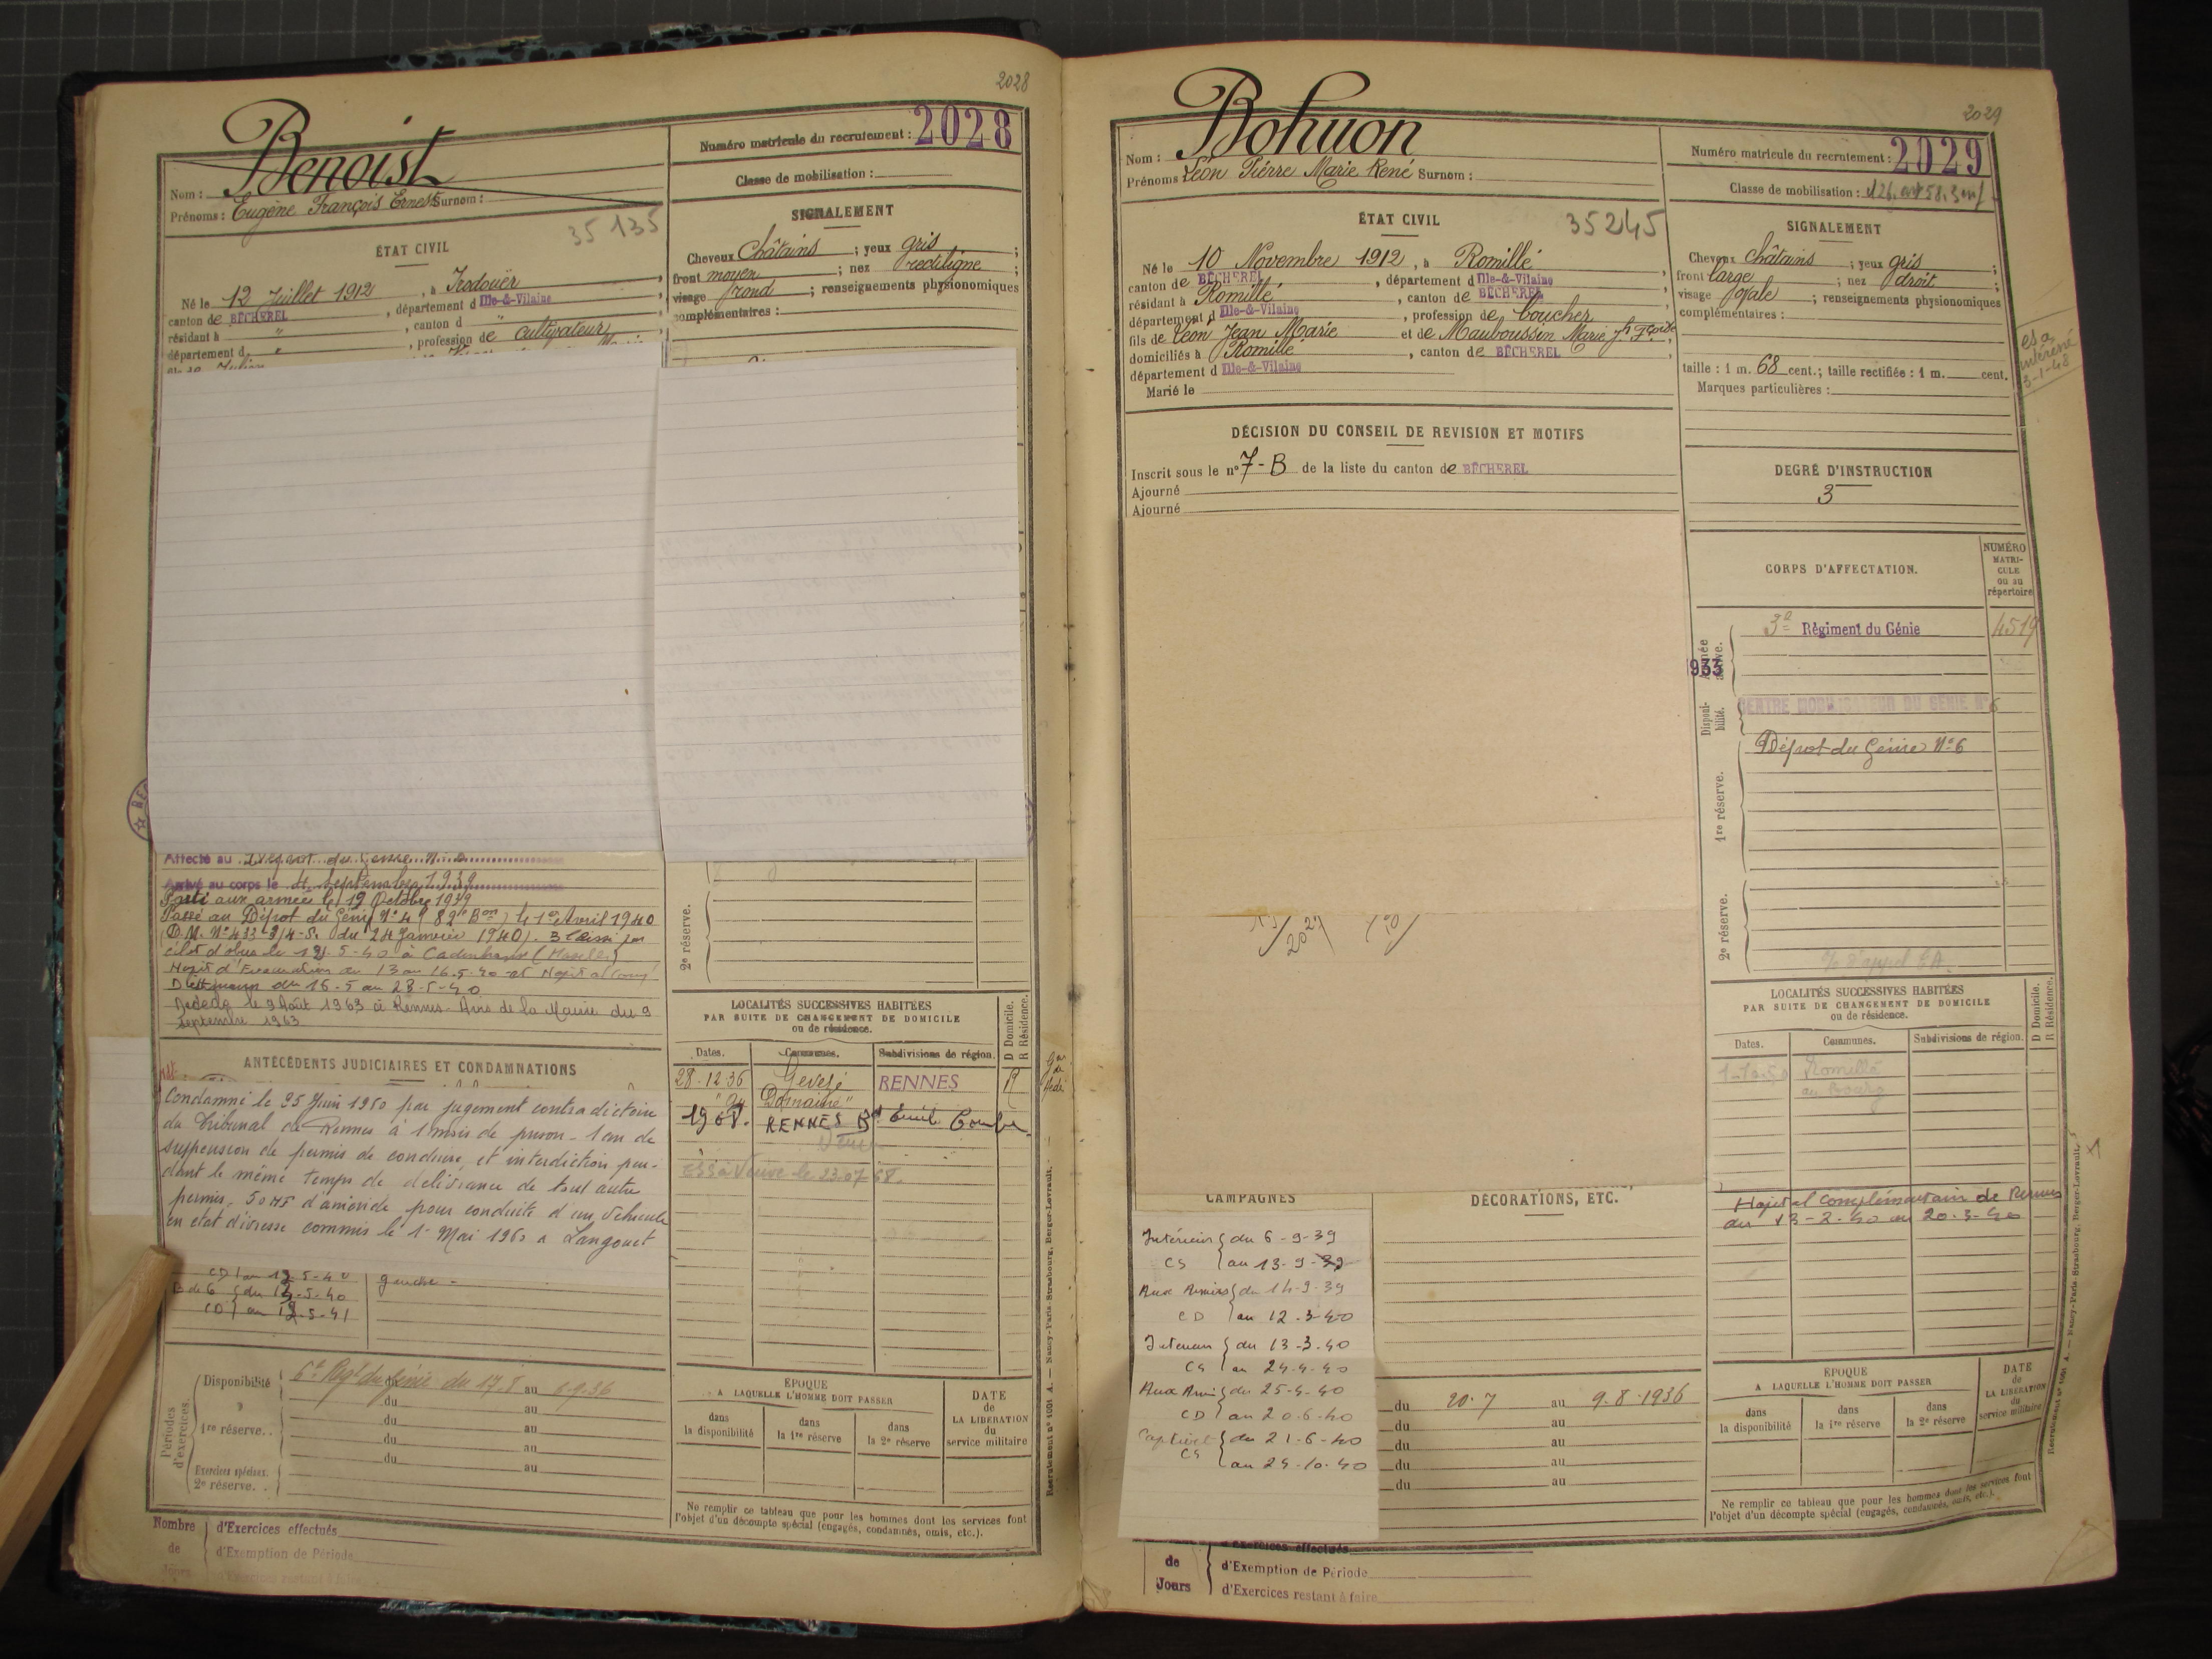 2028
Benoist
Numéro matricule du recrutement : 2028
Nom :
Prénoms : Eugène François Ernest Surnom :
Classe de mobilisation :
35 135
ÉTAT CIVIL
Né le 12 Juillet 1912, à Irodouër,
canton de BÉCHEREL, département d Ille-&-Vilaine,
résidant à ", canton d ",
département d ", profession de cultivateur
SIGNALEMENT
Cheveux Châtains ; yeux gris ;
front moyen ; nez rectiligne ;
visage rond ; renseignements physionomiques
complémentaires :
Affecté au Dépôt du Génie N°
Arrivé au corps le 4 Septembre 1939
Parti aux armées le 12 Octobre 1939
Passé au Dépôt du Génie N° 4 le 1er Avril 1940
(D.M. N° 433-3/4-S. du 24 Janvier 1940). Blessé par
éclat d'obus le 12.5-40 à Cadenbronn (Moselle)
du 13 au 16.5.40 et
du 16.5 au 28.5.40
Décédé le 9 Août 1963 à Rennes. Avis de la Mairie du 9
Septembre 1963
ANTÉCÉDENTS JUDICIAIRES ET CONDAMNATIONS
Condamné le 25 Juin 1960 par jugement contradictoire
du Tribunal de Rennes à 1 mois de prison - 1 an de
suspension de permis de conduire et interdiction pen-
dant le même temps de délivrance de tout autre
permis, 50 NF d'amende pour conduite d'un véhicule
en état d'ivresse commis le 1er Mai 1960 à Langouet
CD au 12.5-40
du 13.5.40
CD au 12.5-41
gauche -
Périodes d'exercices.
Disponibilité 6e Regt du Génie du 17.8 au 6.9.36
du au
1re réserve. . du au
du au
du au
Exercices spéciaux.
2e réserve. .
Nombre de Jours
d'Exercices effectués
d'Exemption de Période
d'Exercices restant à faire
2e réserve.
LOCALITÉS SUCCESSIVES HABITÉES
PAR SUITE DE CHANGEMENT DE DOMICILE
ou de résidence.
D Domicile.
R Résidence.
Dates. Communes. Subdivisions de région.
28.12.36 Gévezé RENNES R
1968. RENNES Bd Emile Combes
Veuve le 23.07.68.
ÉPOQUE
A LAQUELLE L'HOMME DOIT PASSER
dans la disponibilité
dans la 1re réserve
dans la 2e réserve
DATE de LA LIBÉRATION du service militaire
Ne remplir ce tableau que pour les hommes dont les services font
l'objet d'un décompte spécial (engagés, condamnés, omis, etc.).
Recrutement n° 1001 A. — Nancy-Paris-Strasbourg, Berger-Levrault.
2029
Bohuon
Nom :
Prénoms Léon Pierre Marie René Surnom :
Numéro matricule du recrutement : 2029
Classe de mobilisation :
35245
ÉTAT CIVIL
Né le 10 Novembre 1912, à Romillé,
canton de BÉCHEREL, département d Ille-&-Vilaine,
résidant à Romillé, canton de BÉCHEREL,
département d Ille-&-Vilaine, profession de boucher
fils de Léon Jean Marie et de Mauboussin Marie Jh Fçoise,
domiciliés à Romillé, canton de BÉCHEREL,
département d Ille-&-Vilaine
Marié le
SIGNALEMENT
Cheveux châtains ; yeux gris ;
front large ; nez droit ;
visage ovale ; renseignements physionomiques
complémentaires :
taille : 1 m. 68 cent.; taille rectifiée : 1 m. cent.
Marques particulières :
DÉCISION DU CONSEIL DE REVISION ET MOTIFS
Inscrit sous le n° 7-B de la liste du canton de BÉCHEREL
Ajourné
Ajourné
DEGRÉ D'INSTRUCTION
3
CORPS D'AFFECTATION.
NUMÉRO MATRICULE ou au répertoire
Armée active.
933
3e Régiment du Génie 4519
Disponibilité.
CENTRE MOBILISATEUR DU GÉNIE N° 6
1re réserve.
Dépôt du Génie N° 6
2e réserve.
LOCALITÉS SUCCESSIVES HABITÉES
PAR SUITE DE CHANGEMENT DE DOMICILE
ou de résidence.
D Domicile.
R Résidence.
Dates. Communes. Subdivisions de région.
1-10-50 Romillé
au bourg
Hopital complémentaire de Rennes
du 13-2-40 au 20.3-40
CAMPAGNES
DÉCORATIONS, ETC.
Intérieur du 6-9-39
CS au 13-9-39
Aux Armées du 14-9-39
CD au 12.3-40
Intérieur du 13-3.40
CS au 24-4-40
Aux Armées du 25-4-40
CD au 20.6-40
Captivité du 21-6-40
CS au 24-10-40
du 20.7 au 9.8.1936
du au
du au
du au
du au
ÉPOQUE
A LAQUELLE L'HOMME DOIT PASSER
dans la disponibilité
dans la 1re réserve
dans la 2e réserve
DATE de LA LIBÉRATION du service militaire
Ne remplir ce tableau que pour les hommes dont les services font
l'objet d'un décompte spécial (engagés, condamnés, omis, etc.).
de Jours
d'Exercices effectués
d'Exemption de Période
d'Exercices restant à faire
Recrutement n° 1001 A. — Nancy-Paris-Strasbourg, Berger-Levrault.